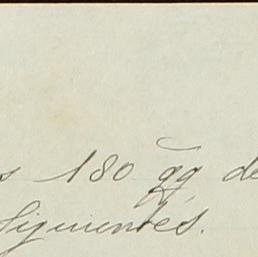 s 180 qq de
Siguientes.